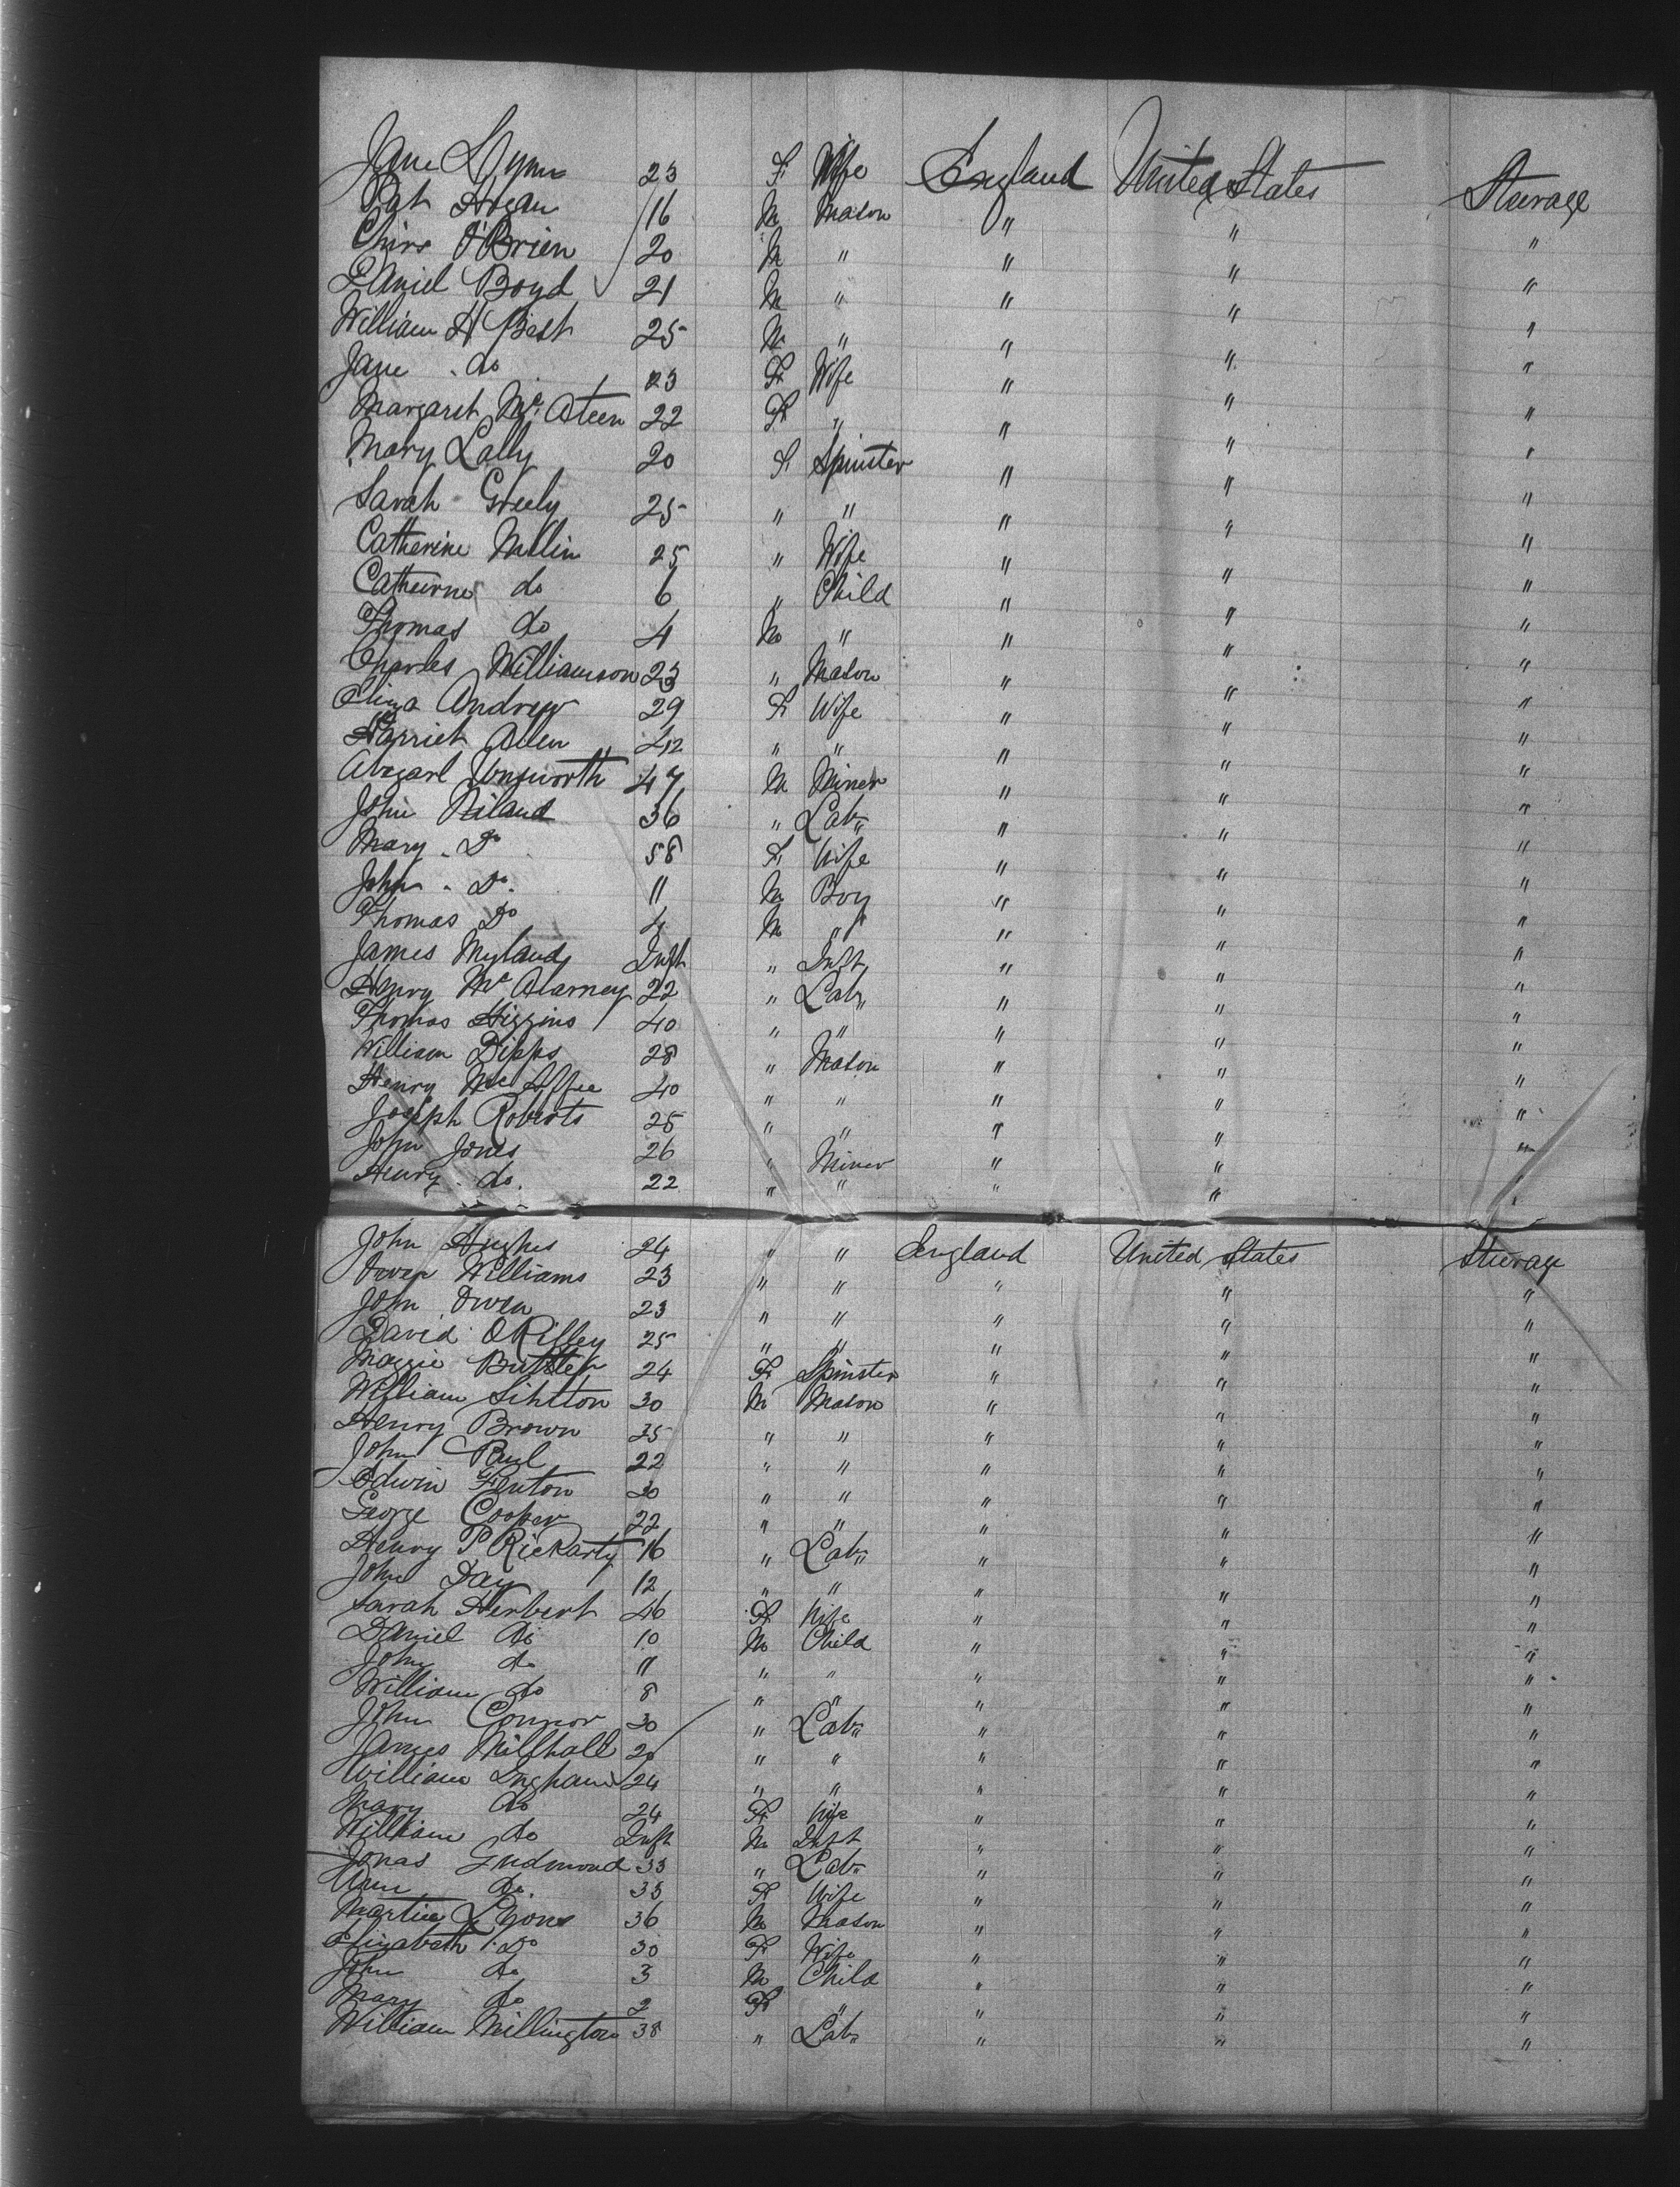 Jane Lynn 23 F Wife England United States Steerage
Pat Hogan 16 M Mason " " "
Chirs O'Brien 20 M " " " "
Daniel Boyd 21 M " " " "
William H Best 25 M " " " "
Jane do 23 F Wife " " "
Margaret Mc Ateen 22 F " " " "
Mary Lally 20 F Spinster " " "
Sarah Greely 25 " " " " "
Catherine Mellin 25 " Wife " " "
Catherine do 6 " Child " " "
Thomas do 4 M " " " "
Charles Williamson 23 " Mason " " "
Eliza Andrew 29 F Wife " " "
Harriet Allen 42 " " " " "
Abegarl Unsworth 47 M Miner " " "
John Niland 36 " Labr " " "
Mary Do 58 F Wife " " "
John Do 11 M Boy " " "
Thomas Do 4 M " " " "
James Myland Inft " Inft " " "
Henry Mc Alarney 22 " Labr " " "
Thomas Higgins 40 " " " " "
William Dipps 28 " Mason " " "
Henry Mc Affee 40 " " " " "
Joseph Roberts 25 " " " " "
John Jones 26 " Miner " " "
Henry do 22 " " " " "
John Hughes 24 " " England United States Steerage
Owen Williams 23 " " " " "
John Owen 23 " " " " "
David O Rilley 25 " " " " "
Maggie Buttler 24 F Spinster " " "
William Sihlton 30 M Mason " " "
Henry Brown 25 " " " " "
John Paul 22 " " " " "
Edwin Fenton 20 " " " " "
George Cooper 22 " " " " "
Henry P Rickarty 16 " Labr " " "
John Day 12 " " " " "
Sarah Herbert 46 F Wife " " "
Daniel do 10 M Child " " "
John do 11 " " " " "
William do 8 " " " " "
John Connor 30 " Labr " " "
James Milfhall 20 " " " " "
William Ingham 24 " " " " "
Mary do 24 F Wife " " "
William do Inft M Inft " " "
Jonas Gudmond 33 " Labr " " "
Ann do 35 F Wife " " "
Martin Lyons 36 M Mason " " "
Elizabeth Do 30 F Wife " " "
John do 3 M Child " " "
Mary do 2 F " " " "
William Millington 38 " Labr " " "